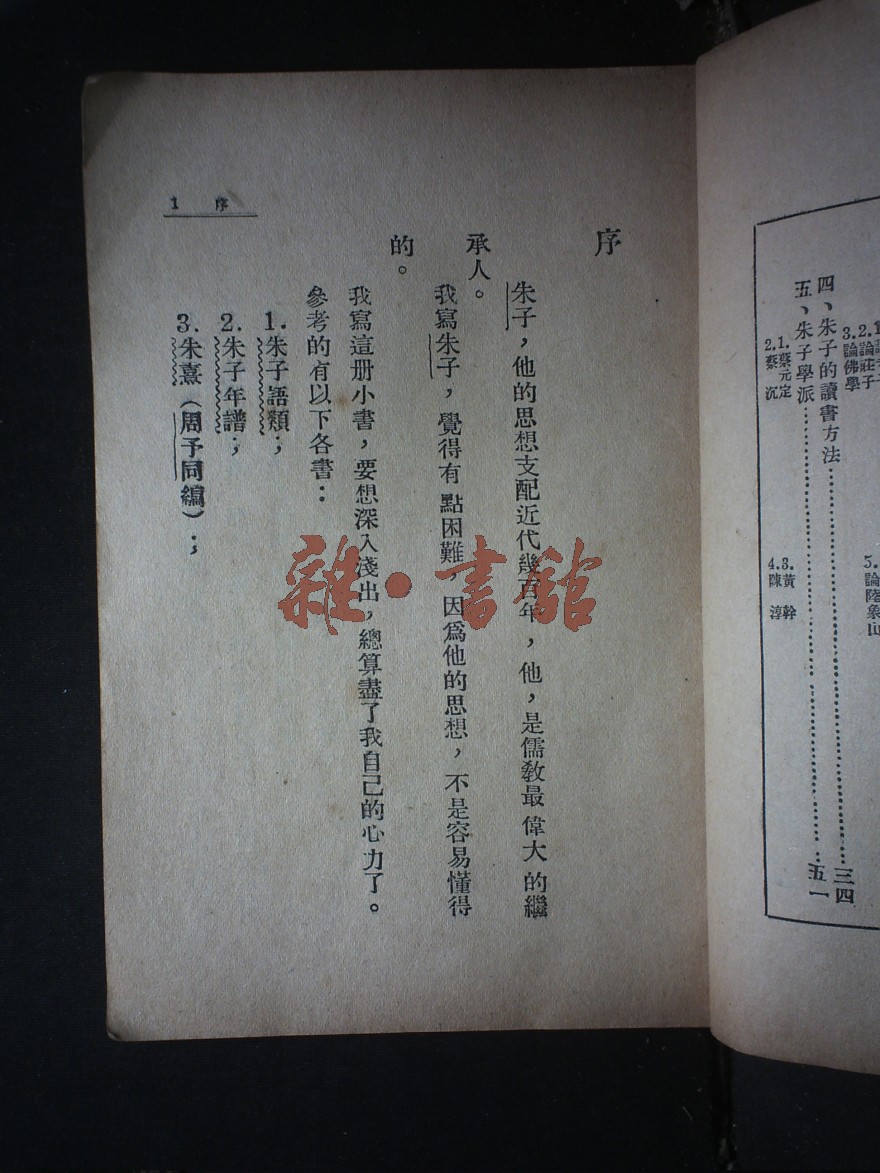 5.論陸象山
2.論莊子
3.論佛學
四、朱子的讀書方法……三四
五、朱子學派……五一
1.蔡元定
3.黃幹
2.蔡沉
4.陳淳
序
朱子，他的思想支配近代幾百年，他，是儒教最偉大的繼
承人。
我寫朱子，覺得有點困難，因爲他的思想，不是容易懂得
的。
我寫這册小書，要想深入淺出，總算盡了我自己的心力了。
參考的有以下各書：
1.朱子語類；
2.朱子年譜；
3.朱熹（周予同編）；
1 序
雜·書館